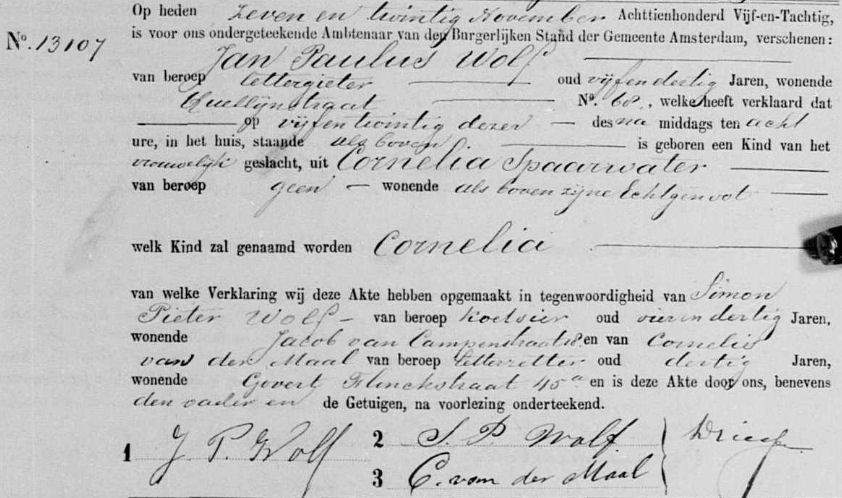 Op heden zeven en twintig November Achttienhonderd Vijf-en-Tachtig,
is voor ons ondergeteekende Ambtenaar van den Burgerlijken Stand der Gemeente Amsterdam, verschenen:
No. 13107
Jan Paulus Wolf
van beroep lettergieter oud vijfendertig Jaren, wonende
Quellijnstraat No. 68, welke heeft verklaard dat
op vijfentwintig dezer des na middags ten acht
ure, in het huis, staande als boven is geboren een Kind van het
vrouwelijk geslacht, uit Cornelia Spaarwater
van beroep geen wonende als boven zijne Echtgenoot
welk Kind zal genaamd worden Cornelia
van welke Verklaring wij deze Akte hebben opgemaakt in tegenwoordigheid van Simon
Pieter Wolf van beroep koetsier oud vierendertig Jaren,
wonende Jacob van Campenstraat en van Cornelis
van der Maal van beroep letterzetter oud dertig Jaren,
wonende Govert Flinckstraat 45a en is deze Akte door ons, benevens
den vader en de Getuigen, na voorlezing onderteekend.
1 J. P. Wolf 2 S. P. Wolf
3 C. van der Maal